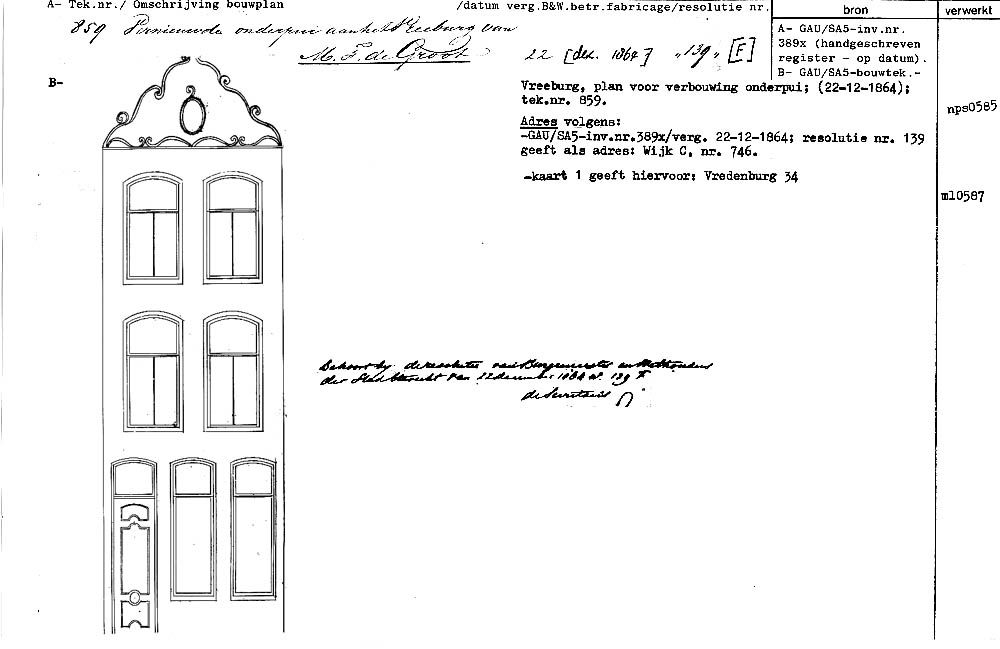 A- Tek.nr./ Omschrijving bouwplan
/datum verg.B&W.betr.fabricage/resolutie nr.
bron
verwerkt
859 Vernieuwde onderpui aan het Vreeburg van
M. F. de Groot
22 [dec. 1864] "139" [F]
A- GAU/SA5-inv.nr.
389x (handgeschreven
register - op datum).
B- GAU/SA5-bouwtek.-
B-
Vreeburg, plan voor verbouwing onderpui; (22-12-1864);
tek.nr. 859.
nps0585
Adres volgens:
-GAU/SA5-inv.nr.389x/verg. 22-12-1864; resolutie nr. 139
geeft als adres: Wijk C, nr. 746.
-kaart 1 geeft hiervoor: Vredenburg 34
ml0587
Behoort bij de resolutie van Burgemeester en Wethouders
der Stad Utrecht van 22 december 1864 No. 139 F
de Secretaris